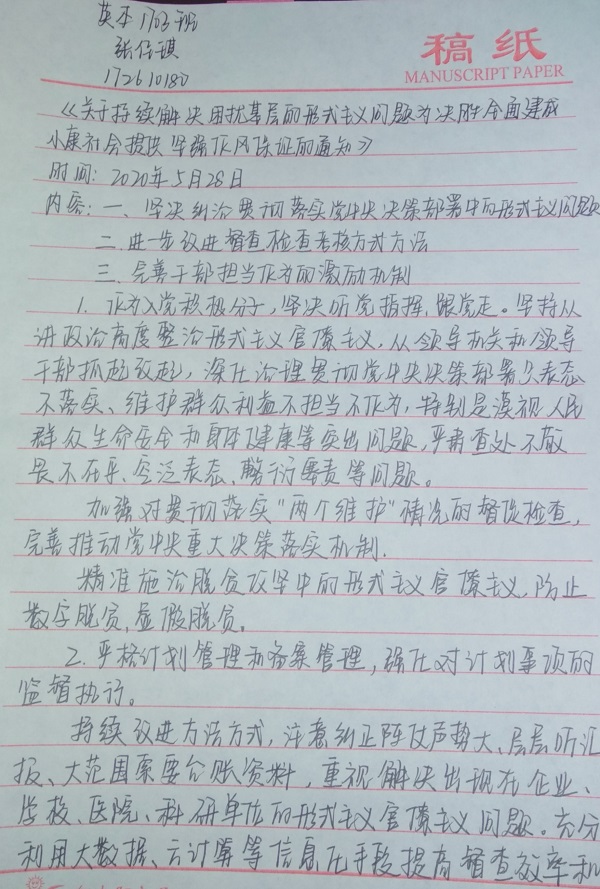 英本1703班
张佳琪
172610180
稿纸
MANUSCRIPT PAPER
《关于持续解决困扰基层的形式主义问题为决胜全面建成
小康社会提供坚强作风保证的通知》
时间：2020年5月28日
内容：一、坚决纠治贯彻落实党中央决策部署中的形式主义问题
二、进一步改进督查检查考核方式方法
三、完善干部担当作为的激励机制
1. 作为入党积极分子，坚决听党指挥，跟党走。坚持从
讲政治高度整治形式主义官僚主义，从领导机关和领导
干部抓起改起，深化治理贯彻党中央决策部署只表态
不落实、维护群众利益不担当不作为，特别是漠视人民
群众生命安全和身体健康等突出问题，严肃查处不敬
畏不在乎、空泛表态、敷衍塞责等问题。
加强对贯彻落实"两个维护"情况的督促检查，
完善推动党中央重大决策落实机制.
精准施治脱贫攻坚中的形式主义官僚主义，防止
数字脱贫，虚假脱贫。
2. 严格计划管理和备案管理，强化对计划事项的
监督执行。
持续改进方法方式，注意纠正阵仗声势大、层层听汇
报、大范围索要台账资料，重视解决出现在企业、
学校、医院、科研单位的形式主义官僚主义问题。充分
利用大数据、云计算等信息化手段提高督查效率和